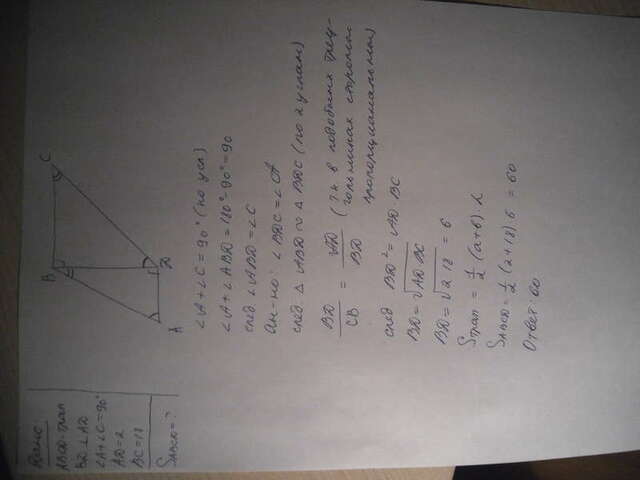 Дано:
ABCD-трап
BD⊥AD
∠A+∠C=90°
AD=2
BC=18
S_ABCD=?
B
C
D
A
∠A+∠C=90° (по усл)
∠A+∠ABD=180°-90°=90
след ∠ABD=∠C
Ан-но: ∠BDC=∠A
след. △ABD∾△BDC (по 2 углам)
BD/CB = AD/BD (т.к в подобных треу-
гольниках стороны
пропорциональны)
след BD²=AD·BC
BD=√AD·BC
BD=√2·18=6
Sтрап=½(a+b)·h
S_ABCD=½(2+18)6=60
Ответ: 60